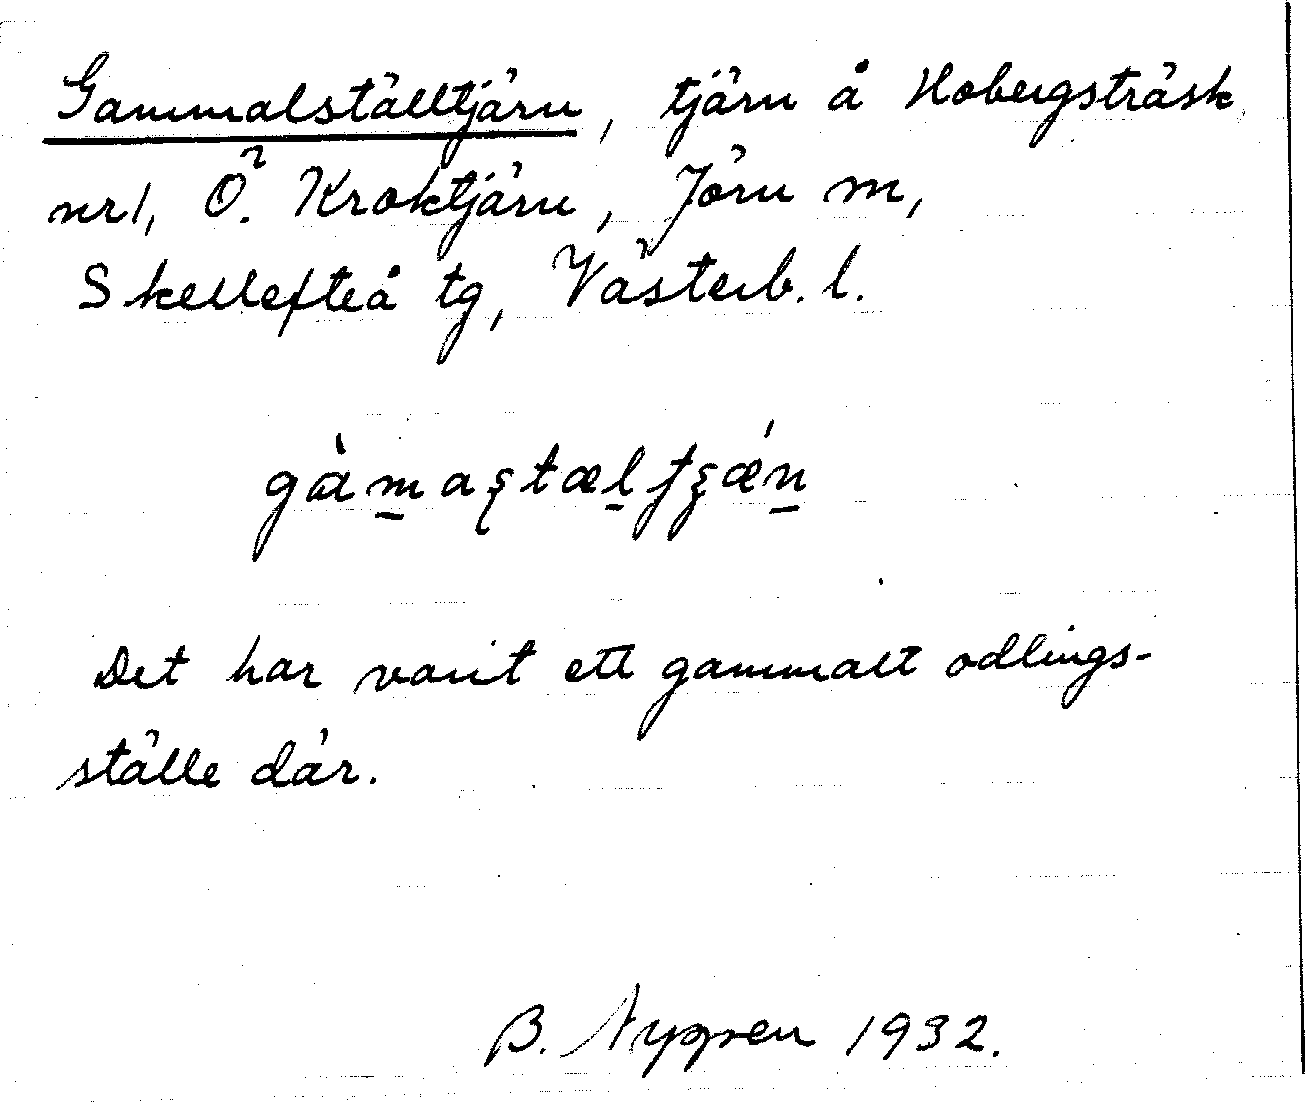 Gammalställtjärn, tjärn å Hobergsträsk
nr 1, Ö. Kroktjärn, Jörn m,
Skellefteå tg, Västerb. l.
gàm̲aştæl̲tʂǽn̲
Det har varit ett gammalt odlings-
ställe där.
B. Nygren 1932.